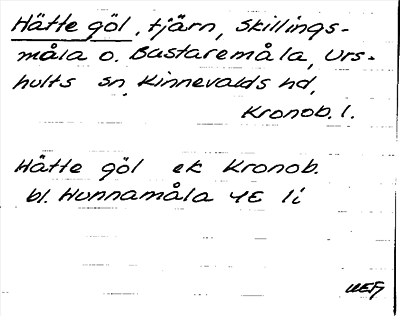 Hätte göl, tjärn, Skillings-
måla o. Bastaremåla, Urs-
hults sn, Kinnevalds hd,
Kronob. l.
Hätte göl ek Kronob.
bl. Hunnamåla 4E li